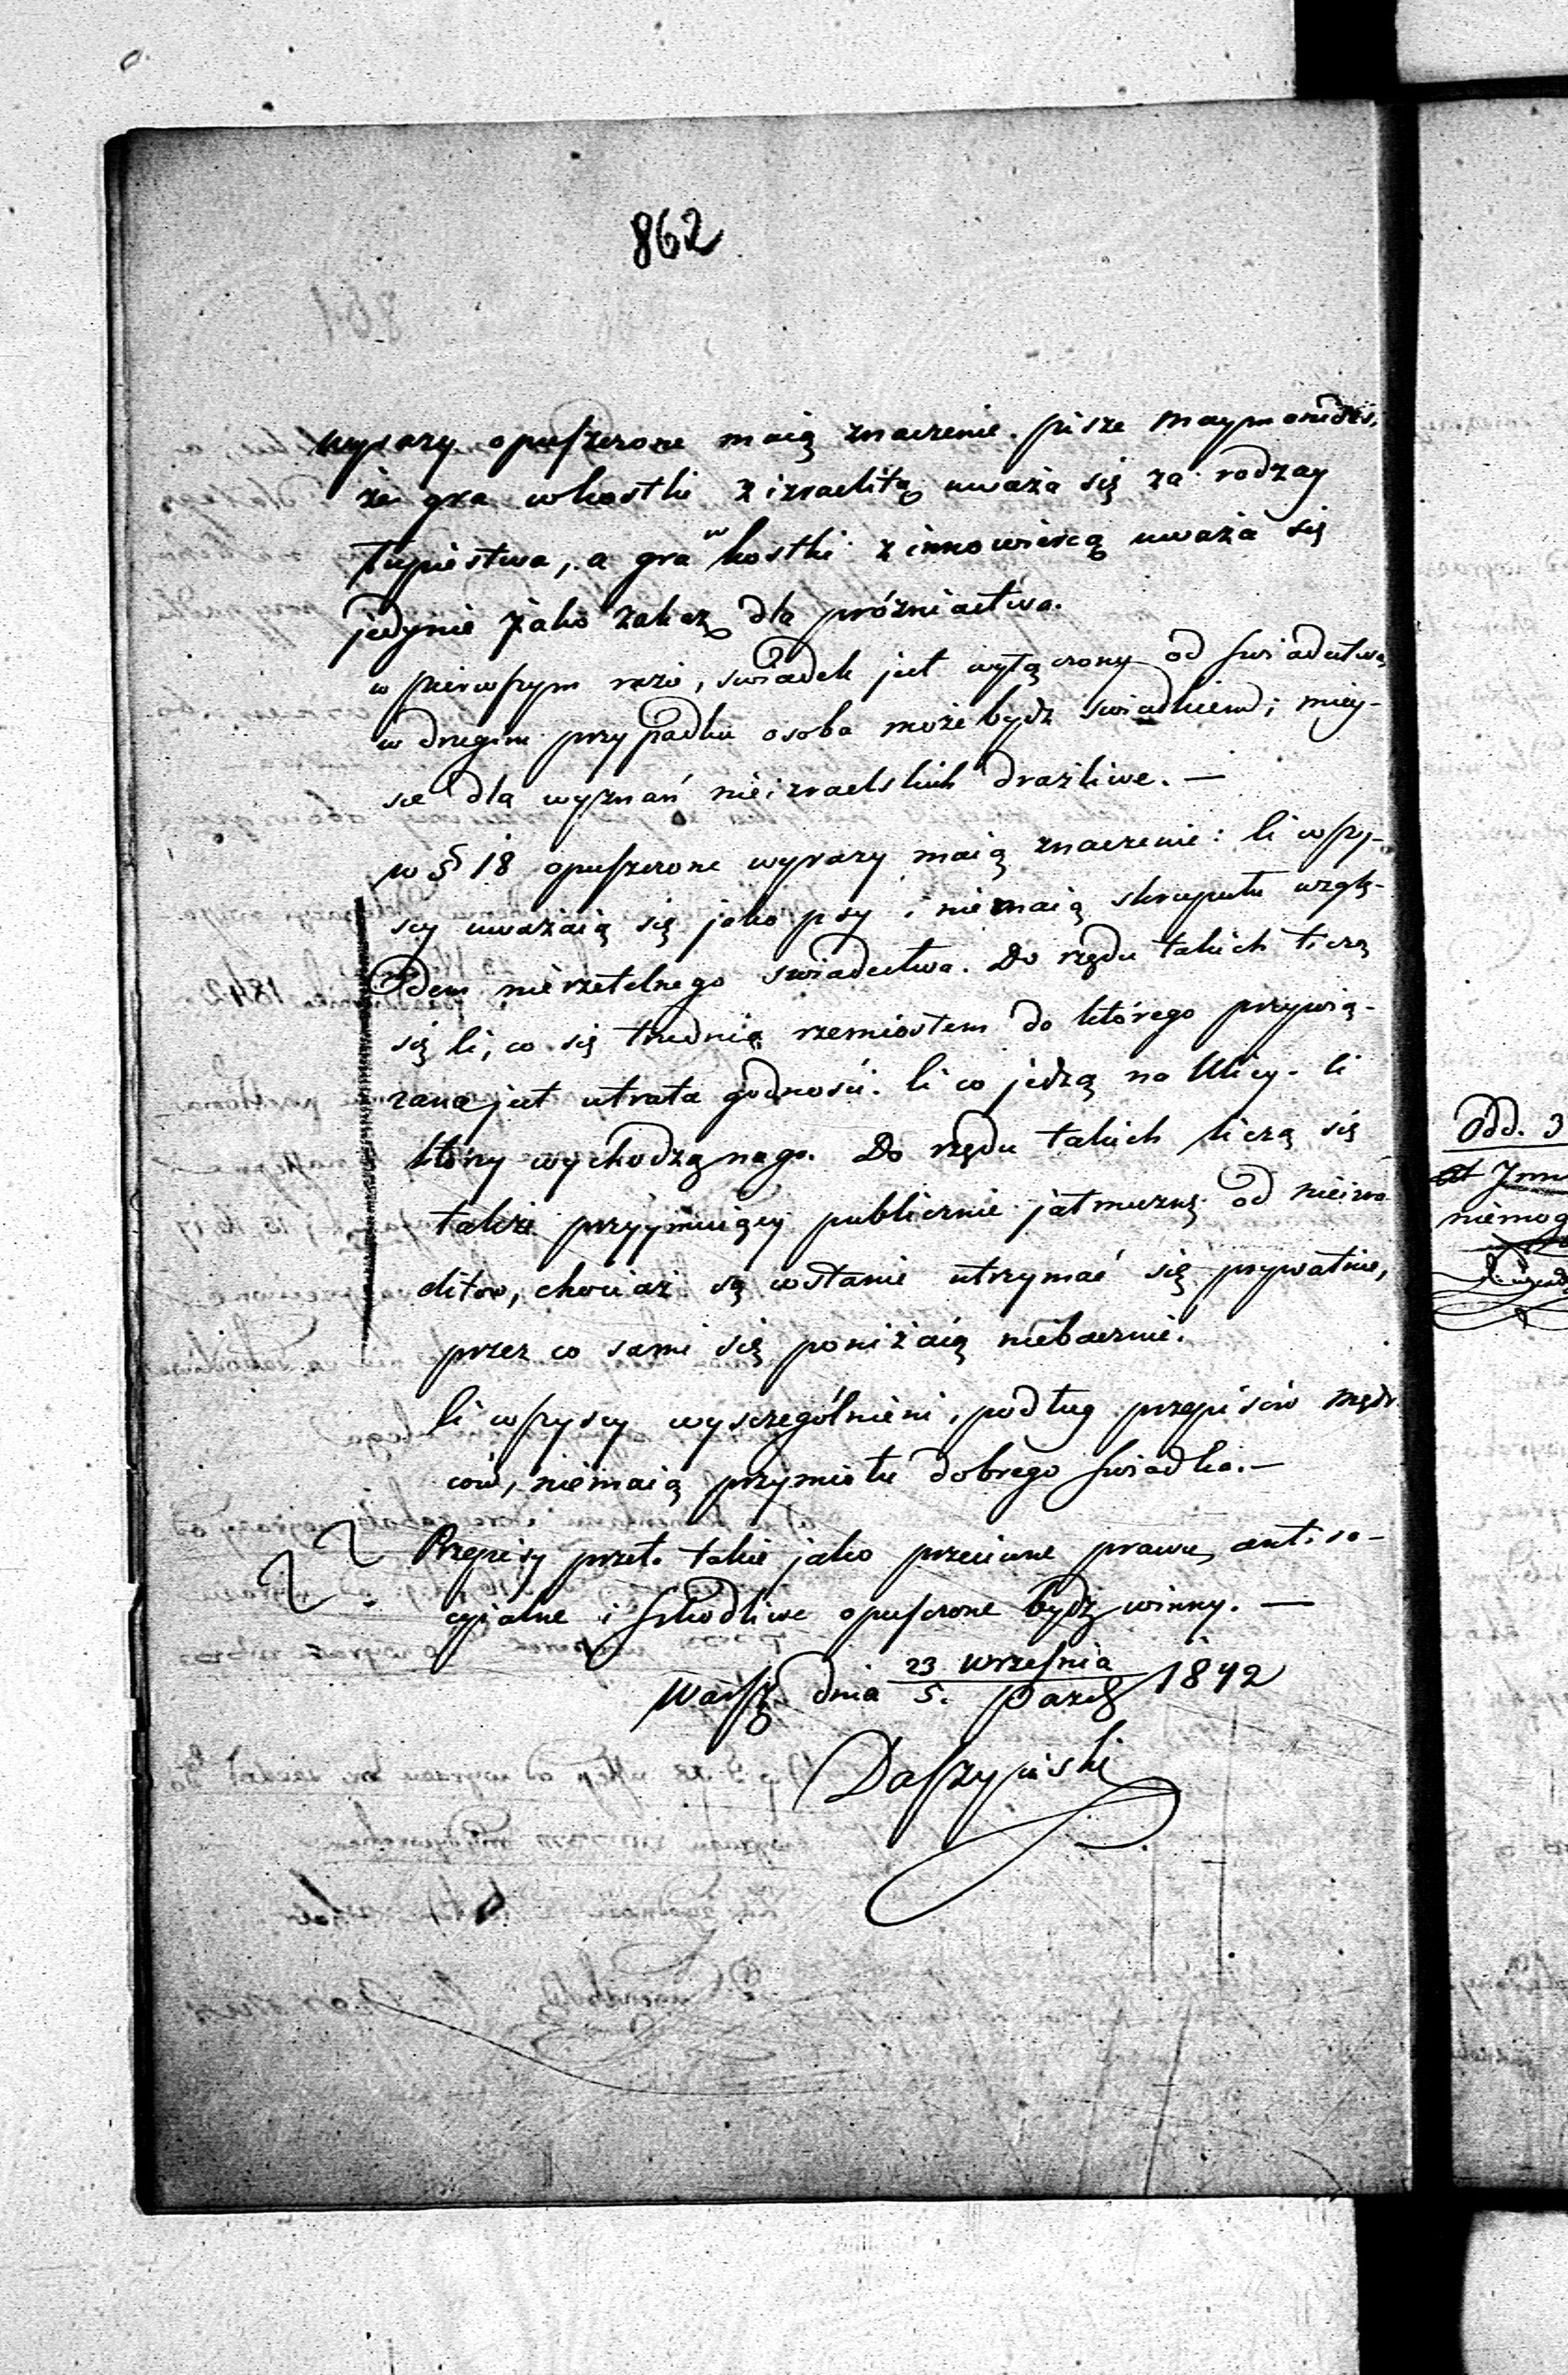 862
wyrazy opuszczone maią znaczenie. pisze Maymonides,
że gra w kostki z izraelitą uważa się za rodzay
łupiestwa, a gra w kostki z innowiercą uważa się
jedynie jako zakaz dla próżniactwa.
w pierwszym razie, świadek jest wyłączony od świadectwa,
w drugim przypadku osoba może bydz swiadkiem; miey-
sce dla wyznań nieizraelskich drażliwe. —
w § 18 opuszczone wyrazy maią znaczenie: ci wszy-
scy uważaią się jako psy i niemaią skrupułu wzglę-
dem nierzetelnego swiadectwa. Do rzędu takich liczą
się ci, co się trudnią rzemiosłem do którego przywią-
zana jest utrata godności. ci co jedzą na Ulicy. ci
którzy wychodzą nago. Do rzędu takich liczą się
także przyymuiący publicznie jałmużnę od nieizra
elitów, chociaż są wstanie utrzymać się prywatnie,
przez co sami się poniżaią niebacznie.
ci wszyscy wyszczególnieni, podług przepisów mędr
ców, niemaią przymiotu dobrego świadka. —
Przepisy przeto takie jako przeciwne prawu, antiso-
cyjalne i szkodliwe opuszczone bydź winny. —
Warsz dnia 23 września
5. Pazdz 1842
Odd. 3
niemog